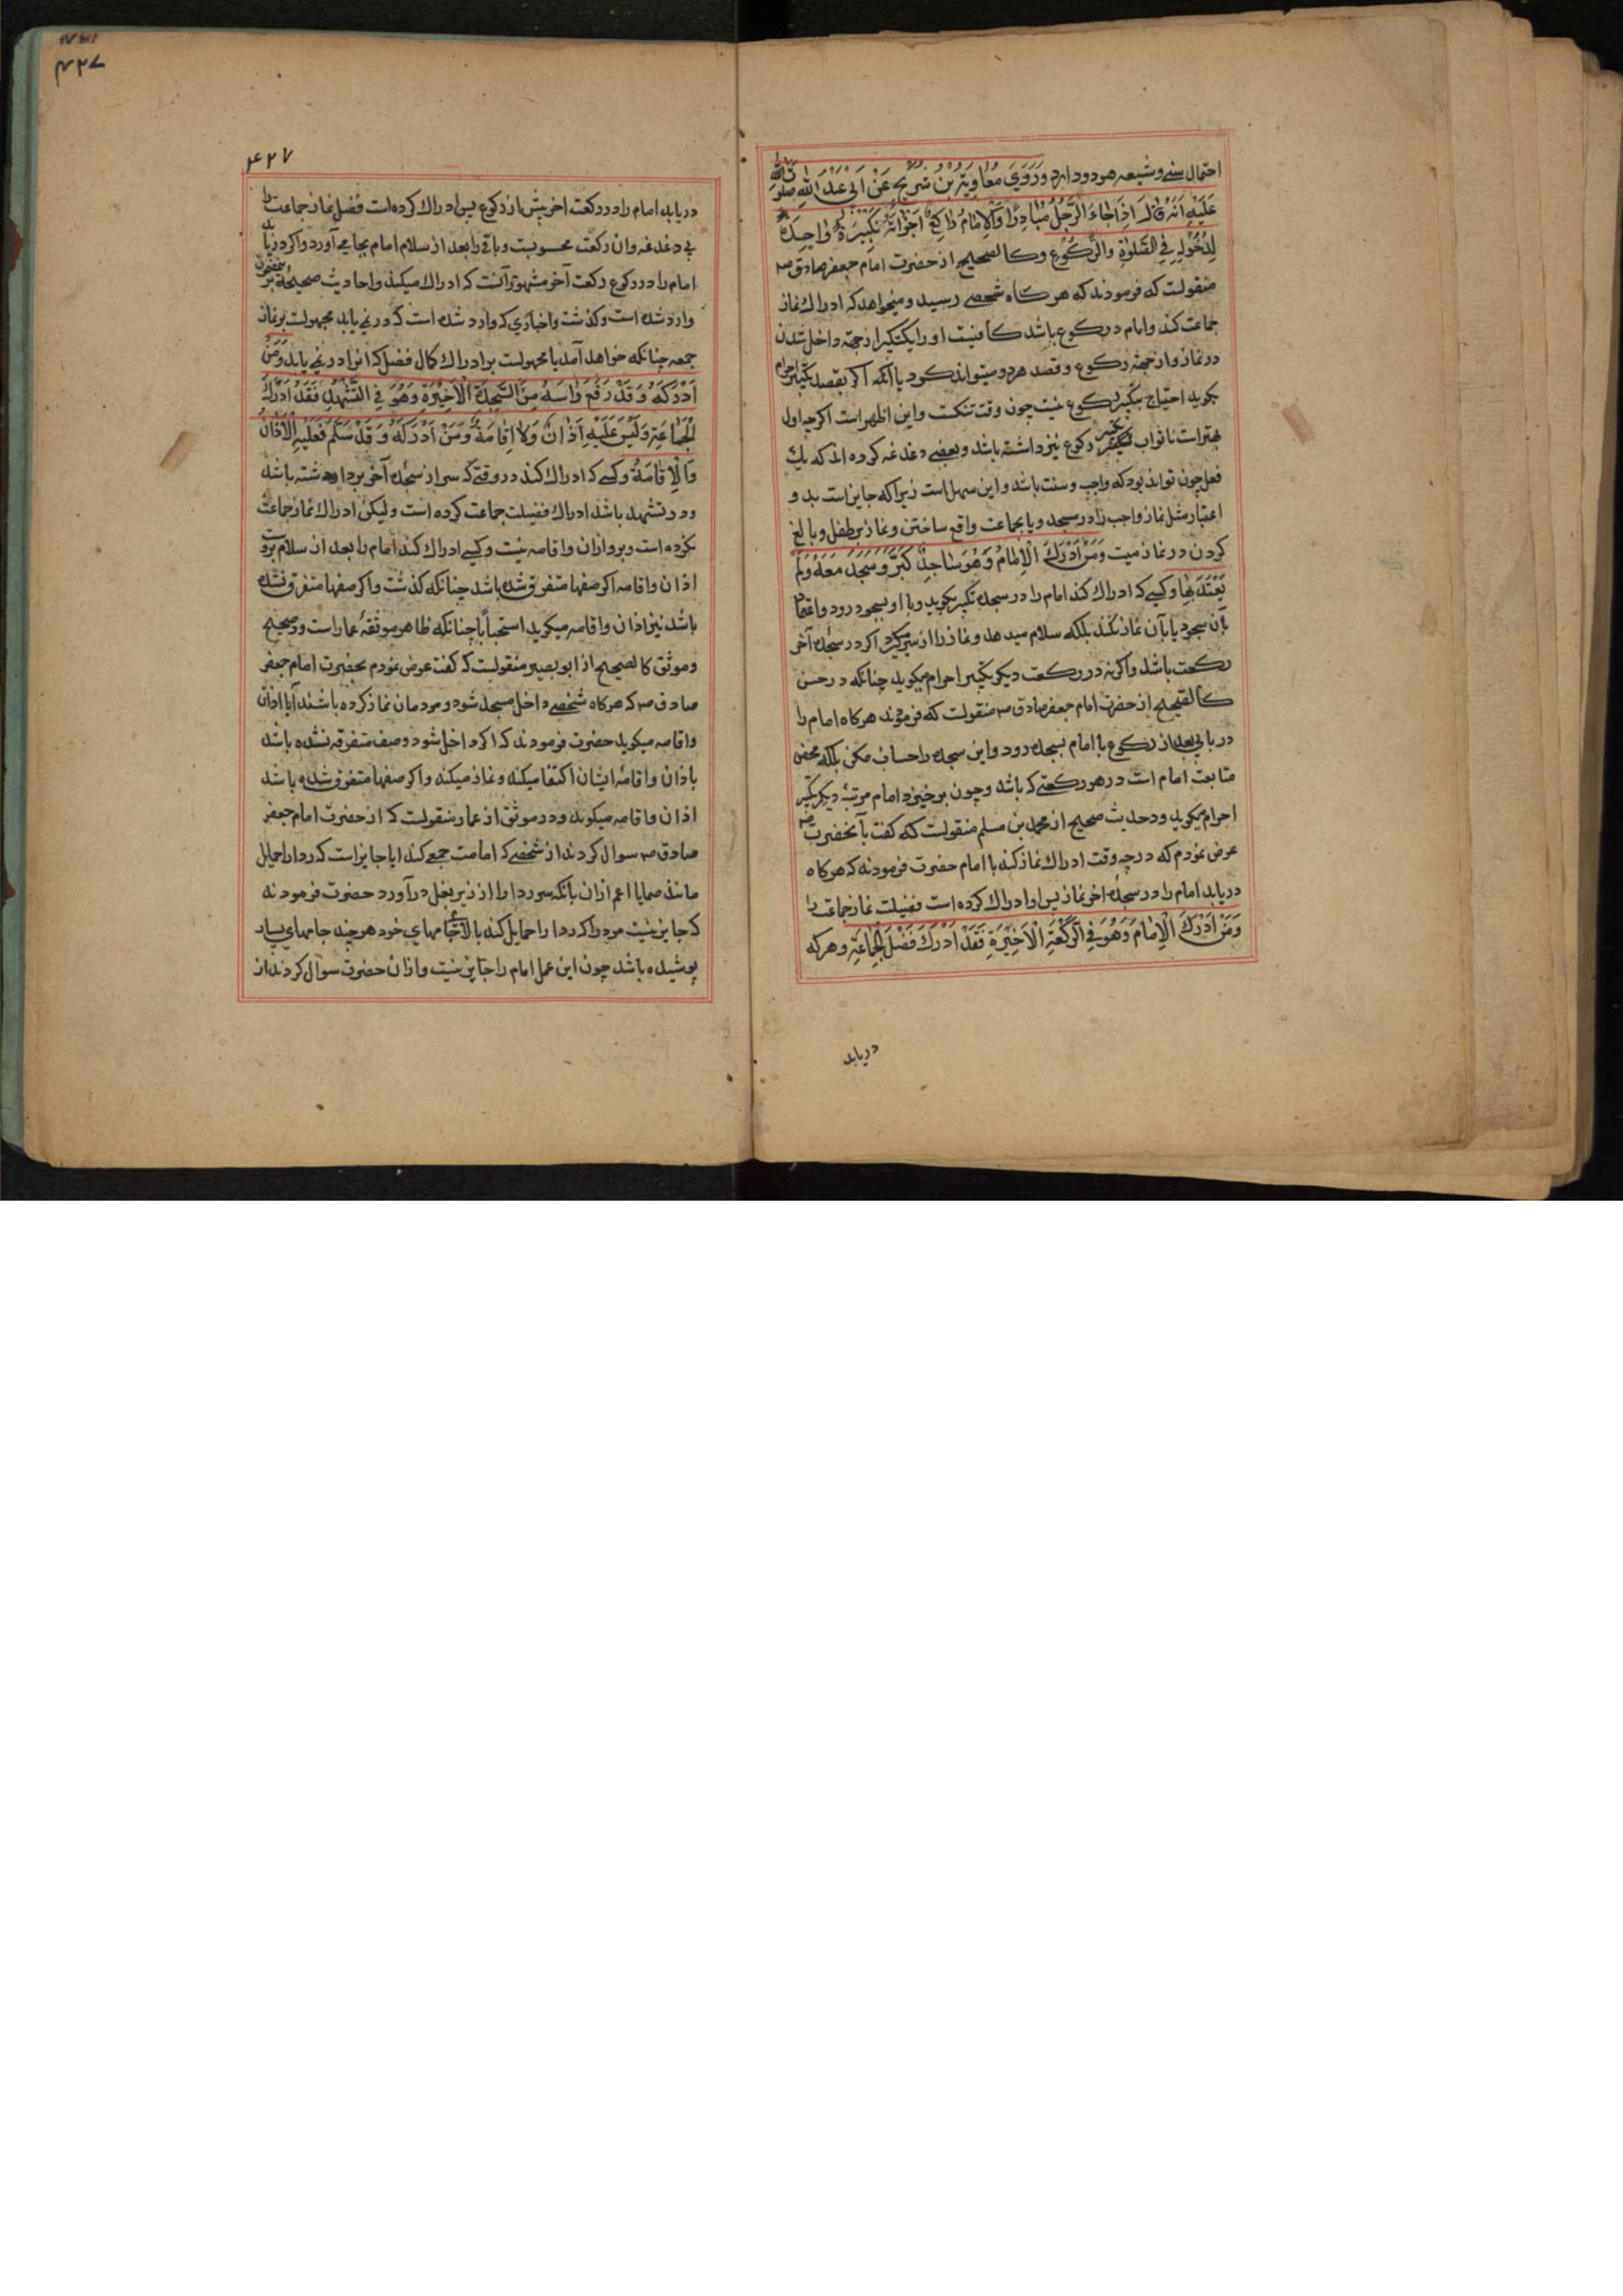 احتمال سنی و شیعه هر دو دارد وَرَوَيَ مُعَاوِيَةُ بْنُ شُرَيْحٍ عَنْ اَبِي عَبْدِ اللهِ صَلَوَاتُ اللهِ
عَلَيْهِ اَنَّهُ قَالَ اِذَا جَاءَ الرَّجُلُ مُبَادِرًا وَالْاِمَامُ رَاكِعٌ اَجْزَاَتْهُ تَكْبِيرَةٌ وَاحِدَةٌ
لِدُخُولِهِ فِي الصَّلوٰةِ وَالرُّكُوعِ وکالصحیح از حضرت امام جعفر صادق ص
منقولست که فرمودند که هر کاه شخصی رسید و میخواهد که ادراک نماز
جماعت کند و امام در رکوع باشد کافیست او را یکتکبیر از جهة داخل شدن
در نماز و از جهة رکوع و قصد هر دو میتواند کرد یا انکه اکر بقصد تکبیر احرام
بکوید احتیاج بتکبیر رکوع نیست چون وقت تنکست و این اظهر است اکرچه اول
بهتر است تا ثواب تکبیر رکوع نیز داشته باشد و بعضی دغدغه کرده اند که یک
فعل چون تواند بود که واجب و سنت باشد و این سهل است زیرا که جایز است بد و
اعتبار مثل نماز واجب را در مسجد و یا بجماعت واقع ساختن و نماز بر طفل و بالغ
کردن در نماز میت وَمَنْ اَدْرَكَ الْاِمَامَ وَهُوَ سَاجِدٌ كَبَّرَ وَسَجَدَ مَعَهُ وَلَمْ
يَعْتَدَّ بِهَا و کسی که ادراک کند امام را در سجده تکبیر بکوید و با او بسجود رود و اعتماد
بآن سجود یا بآن نماز نکند بلکه سلام میدهد و نماز را از سر میکیرد اکر در سجده آخر
رکعت باشد واکرنه در رکعت دیکر تکبیر احرام میکوید چنانکه در حسن
کالصحیح از حضرت امام جعفر صادق ص منقولست که فرمودند هر کاه امام را
دریابی بعد از رکوع با امام بسجده رود و این سجده را حساب مکن بلکه محض
متابعت امام است در هر رکعتی که باشد و چون برخیزد امام مرتبهٔ دیکر تکبیر
احرام میکوید و در حدیث صحیح از محمد بن مسلم منقولست که کفت بآنحضرت ص
عرض نمودم که در چه وقت ادراک نماز کند با امام حضرت فرمودند که هر کاه
دریابد امام را در سجدهٔ اخر نماز پس او ادراک کرده است فضیلت نماز جماعت را
وَمَنْ اَدْرَكَ الْاِمَامَ وَهُوَ فِي الرَّكْعَةِ الْاَخِيْرَةِ فَقَدْ اَدْرَكَ فَضْلَ الْجَمَاعَةِ و هر که
دریابد
۴۲۷
۴۲۷
دریابد امام را در رکعت اخر پیش از رکوع پس ادراک کرده است فضل نماز جماعت را
بی دغدغه و ان رکعت محسوبست و باقی را بعد از سلام امام بجا می آورد و اکر دریابد
امام را در رکوع رکعت آخر مشهور آنست که ادراک میکند و احادیث صحیحه بر
وارد شده است و کذشت و اخباری که وارد شده است که در نمی یابد محمولست بر نماز
جمعه چنانکه خواهد آمد یا محمولست بر ادراک کمال فضل که انرا در نمی یابد وَمَنْ
اَدْرَكَهُ وَقَدْ رَفَعَ رَاسَهُ مِنَ السَّجْدَةِ الْاَخِيْرَةِ وَهُوَ فِي التَّشَهُّدِ فَقَدْ اَدْرَكَ
الْجَمَاعَةَ وَلَيْسَ عَلَيْهِ اَذَانٌ وَلَا اِقَامَةٌ وَمَنْ اَدْرَكَهُ وَقَدْ سَلَّمَ فَعَلَيْهِ الْاَذَانُ
وَالْاِقَامَةُ و کسی که ادراک کند در وقتی که سر از سجدهٔ آخر برداشته باشد
و در تشهد باشد ادراک فضیلت جماعت کرده است ولیکن ادراک نماز جماعت
نکرده است و بر او اذان و اقامه نیست و کسی ادراک کند امام را بعد از سلام بروست
اذان و اقامه اکر صفها متفرق شده باشد چنانکه کذشت و اکر صفها متفرق نشده
باشد نیز اذان و اقامه میکوید استحباباً چنانکه ظاهر موثقهٔ عمار است و در صحیح
و موثق کالصحیح از ابو بصیر منقولست که کفت عرض نمودم بحضرت امام جعفر
صادق ص که هر کاه شخصی داخل مسجد شود و مردمان نماز کرده باشند آیا اذان
و اقامه میکوید حضرت فرمودند که اکر داخل شود و صف متفرقه نشده باشد
باذان و اقامهٔ ایشان اکتفا میکند و نماز میکند و اکر صفها متفرق شده باشد
اذان و اقامه میکوید و در موثق از عمار منقولست که از حضرت امام جعفر
صادق ص سوال کردند از شخصی که امامت جمعی کند ایا جایز است که ردا را حمایل
مانند اعم ازان بانکه سر ردا را از زیر بغل در آورد حضرت فرمودند
که جایز نیست مرد را که ردا را حمایل کند بالای جامهای خود هر چند جامهای بسیار
پوشیده باشد چون این عمل امام را جایز نیست و ازان حضرت سوال کردند از